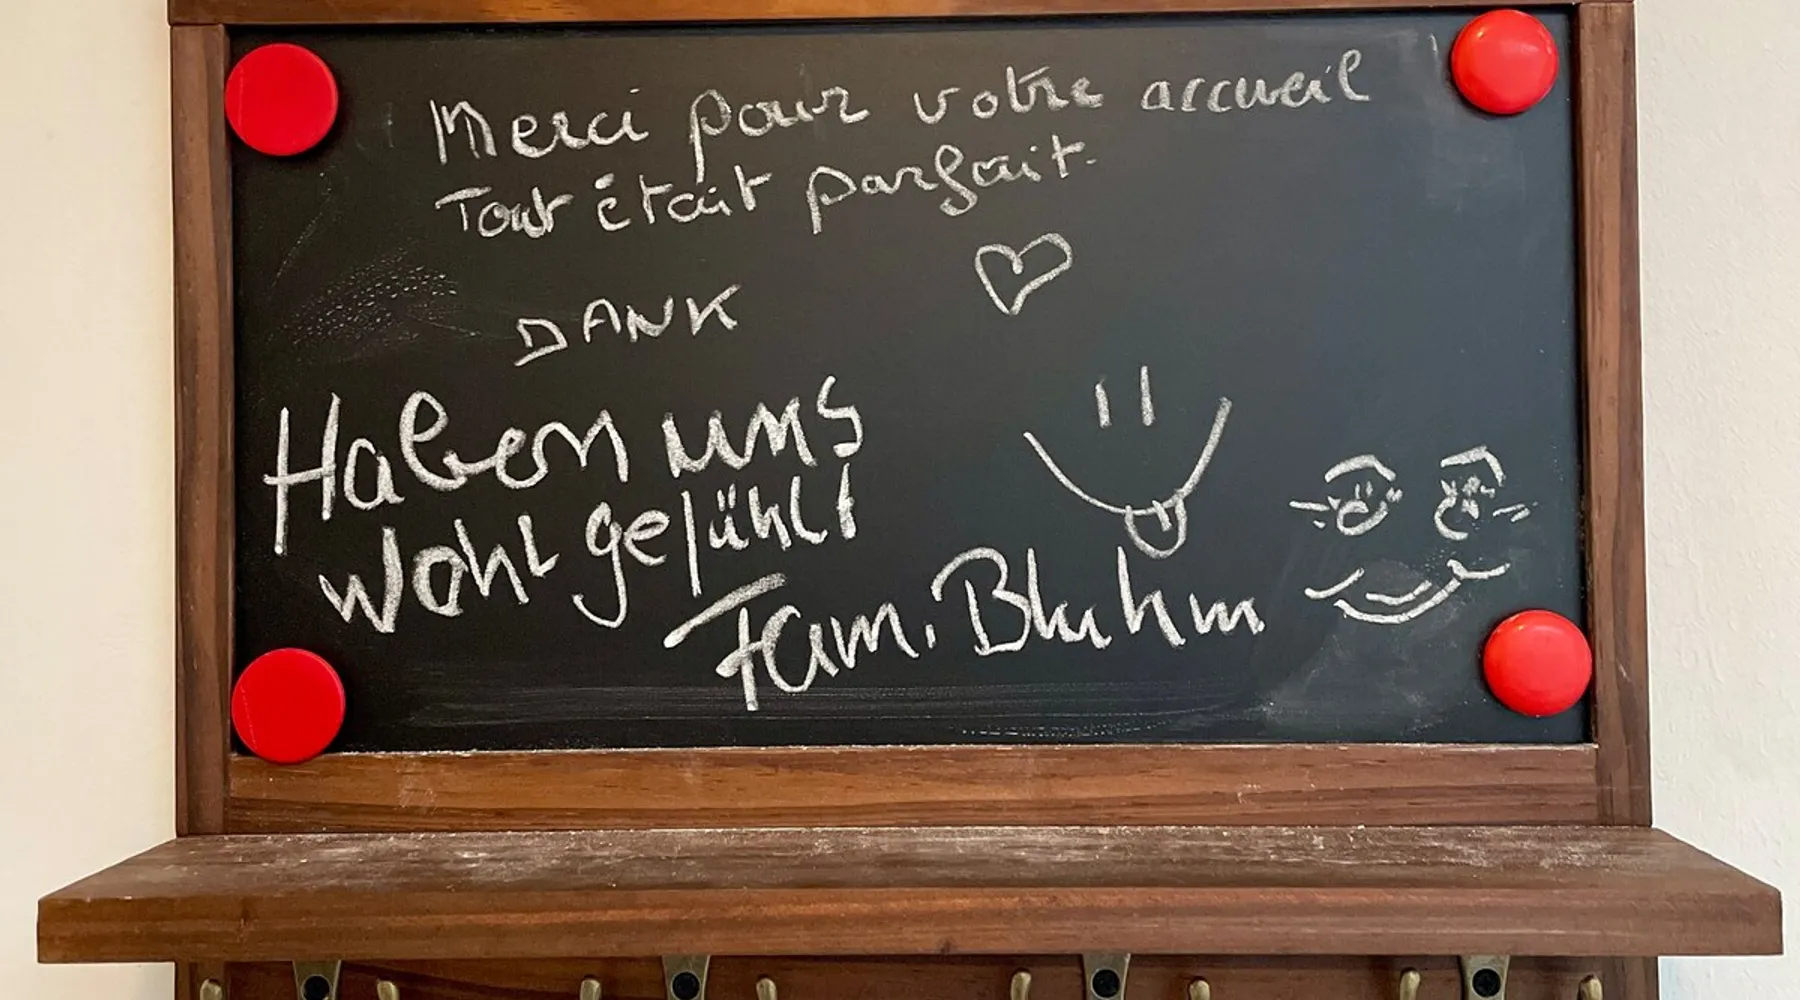 Merci pour votre accueil
Tout était parfait.
DANK
Haben uns
wohl gefühlt
Fam. Bluhm